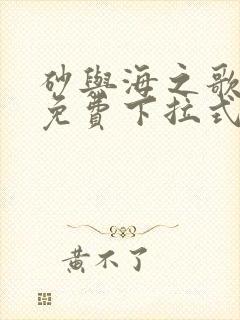 砂與海之歌
免費下拉式
黃不了